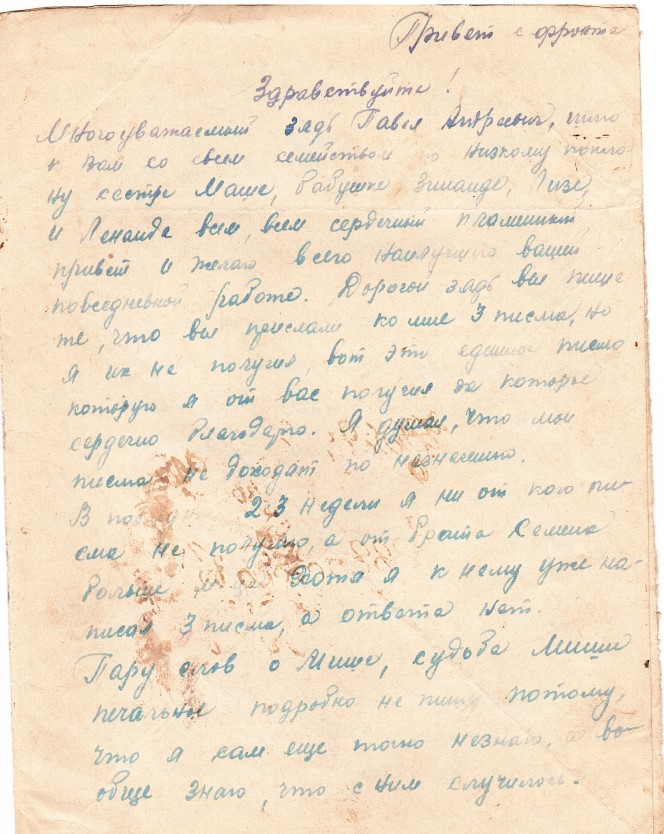 Привет с фронта
Здравствуйте!
Многоуважаемый зядь Павел Андреевич,
к вам со всем семейством по низкому покло
ну сестре Маше, бабушке Зинаиде, Лизе,
и Ленаиде всем, всем сердечный пламенный
привет и желаю всего наилучшего вашей
повседневной работе. Дорогой зядь вы пише
те, что вы прислали ко мне 3 писма, но
я их не получил, вот это единое писмо
которую я от вас получил за которые
сердечно благодарю. Я думал, что мои
писма не доходят по назначению.
В 2-3 недели я ни от кого пи-
сма не получаю, а от брата Семена
больше Хотя я к нему уже на-
писал 3 писма, а ответа нет.
Пару слов о Мише, судьба Миши
печальные подробно не пишу потому,
что я сам еще точно незнаю, а во-
обще знаю, что с ним случилось.